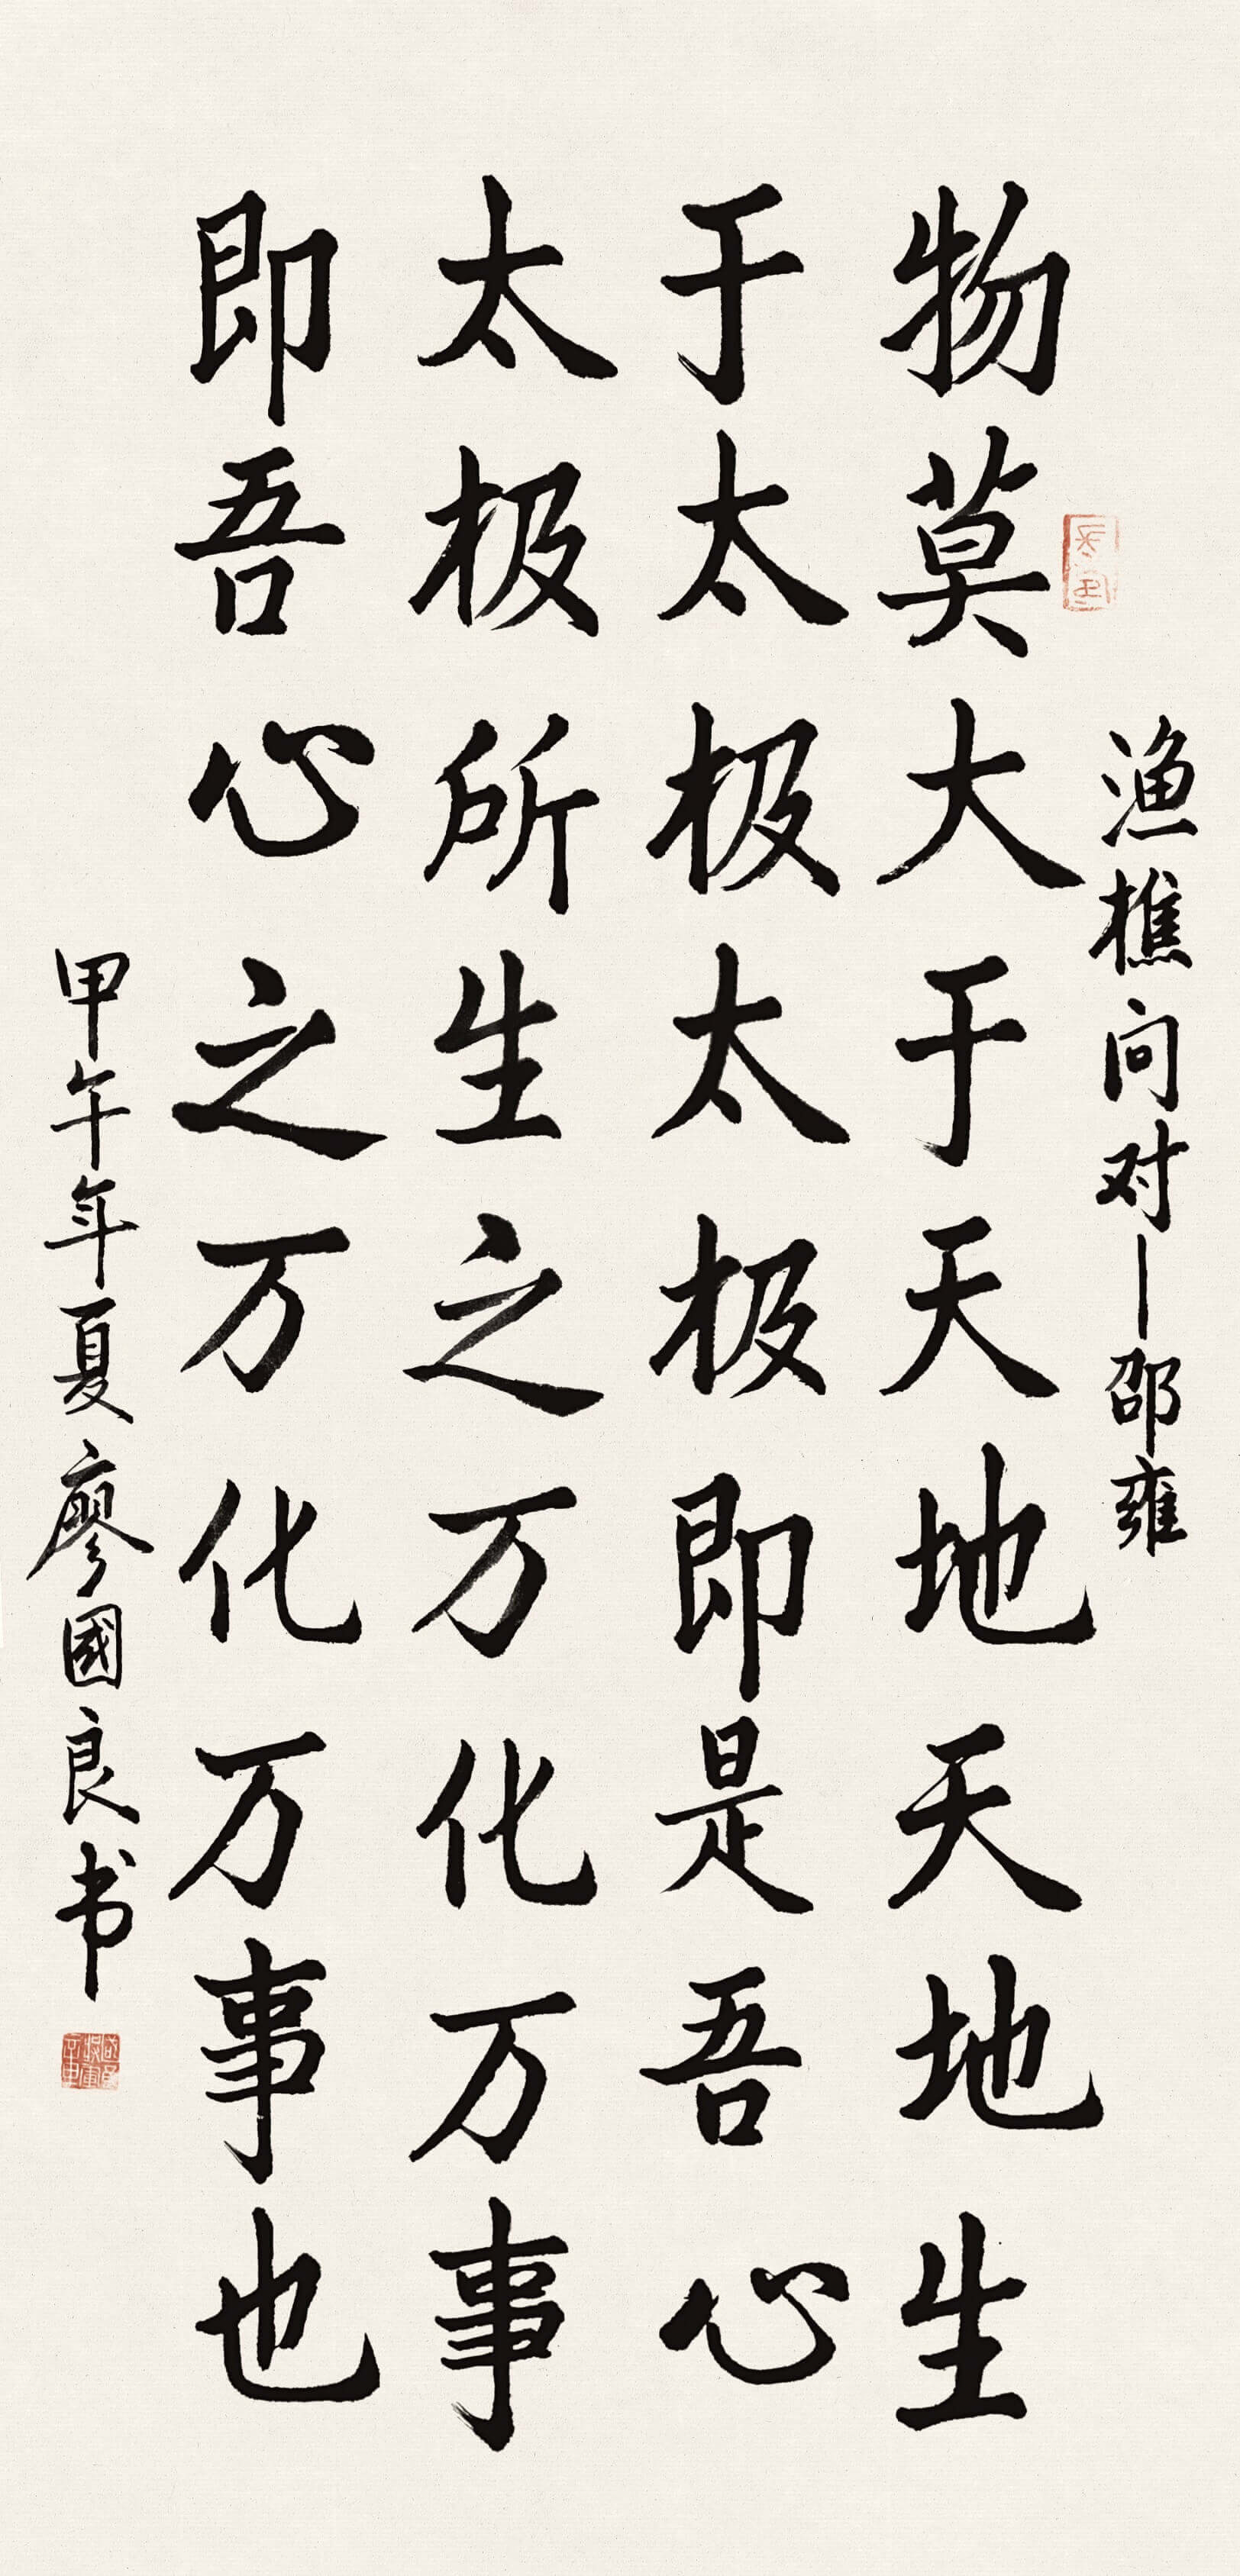 渔樵问对——邵雍
物莫大于天地天地生
于太极太极即是吾心
太极所生之万化万事
即吾心之万化万事也
甲午年夏廖國良书